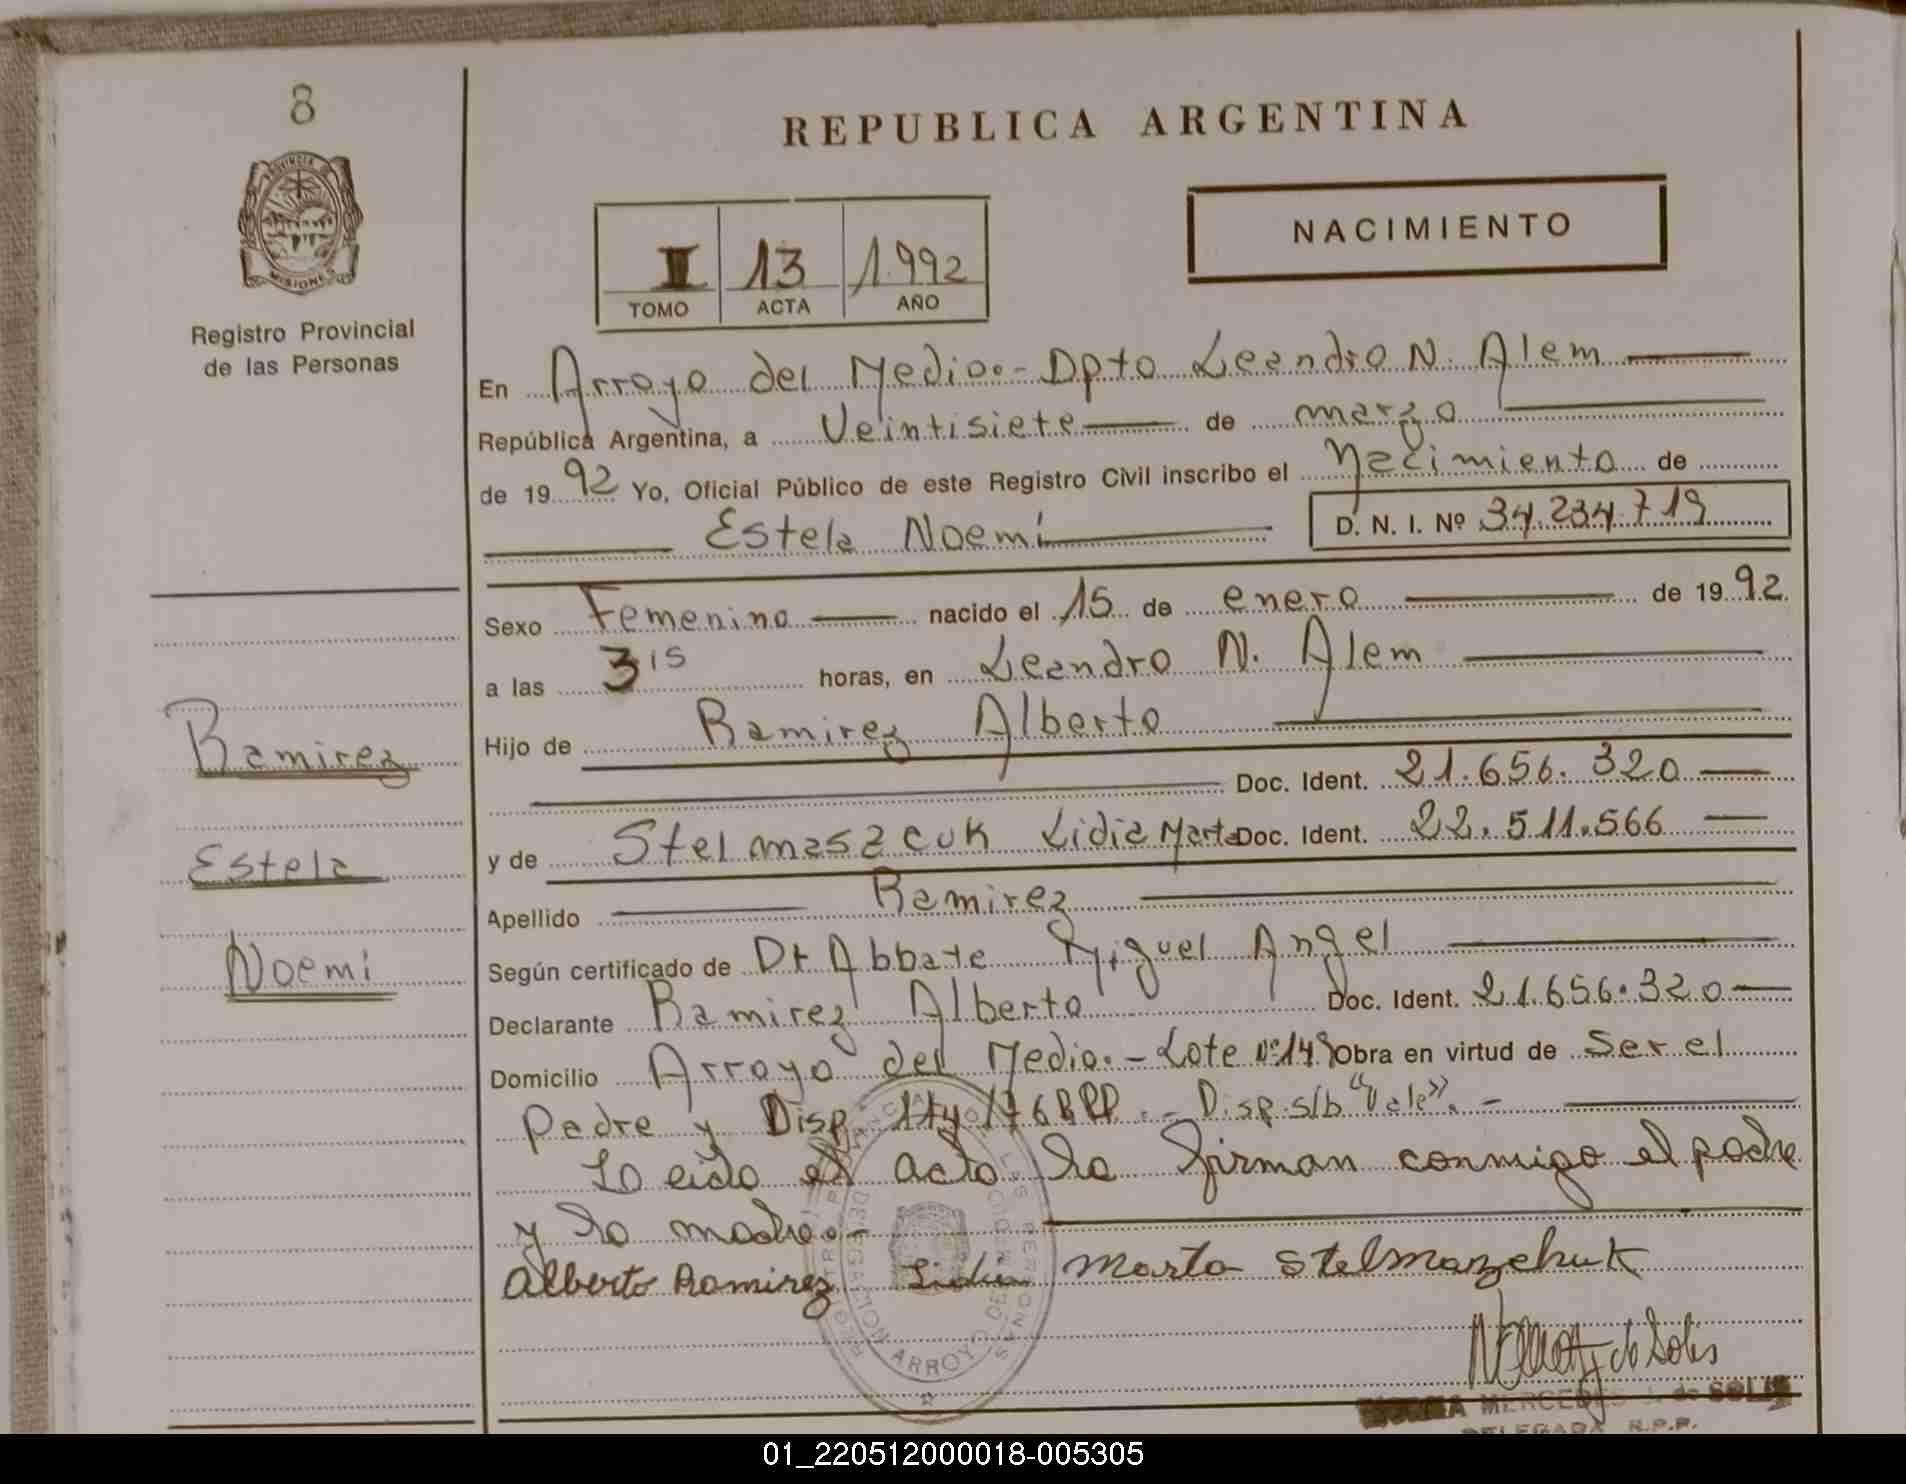 8
PROVINCIA DE
MISIONES
Registro Provincial
de las Personas
Ramirez
Estela
Noemi
REPUBLICA ARGENTINA
II 13 1.992
TOMO ACTA AÑO
NACIMIENTO
En Arroyo del Medio.- Dpto Leandro N. Alem
República Argentina, a Veintisiete de marzo
de 1992 Yo, Oficial Público de este Registro Civil inscribo el Nacimiento de
Estela Noemi D. N. I. Nº 34.234.719
Sexo Femenino nacido el 15 de enero de 1992.
a las 3 15 horas, en Leandro N. Alem
Hijo de Ramirez Alberto
Doc. Ident. 21.656.320
y de Stelmaszcuk Lidia Marta Doc. Ident. 22.511.566
Apellido Ramirez
Según certificado de Dr Abbate Miguel Angel
Declarante Ramirez Alberto Doc. Ident. 21.656.320
Domicilio Arroyo del Medio.- Lote Nº 148 Obra en virtud de Ser el
Padre y Disp. /76 RPP.- Disp. s/b "Vale".-
Leido el acta la firman conmigo el padre
y la madre.-
Alberto Ramirez Lidia Marta Stelmazchuk
de Solis
MERCEDES de SOLIS
DELEGADA R.P.P.
DELEGACION ARROYO DEL MEDIO
01_220512000018-005305